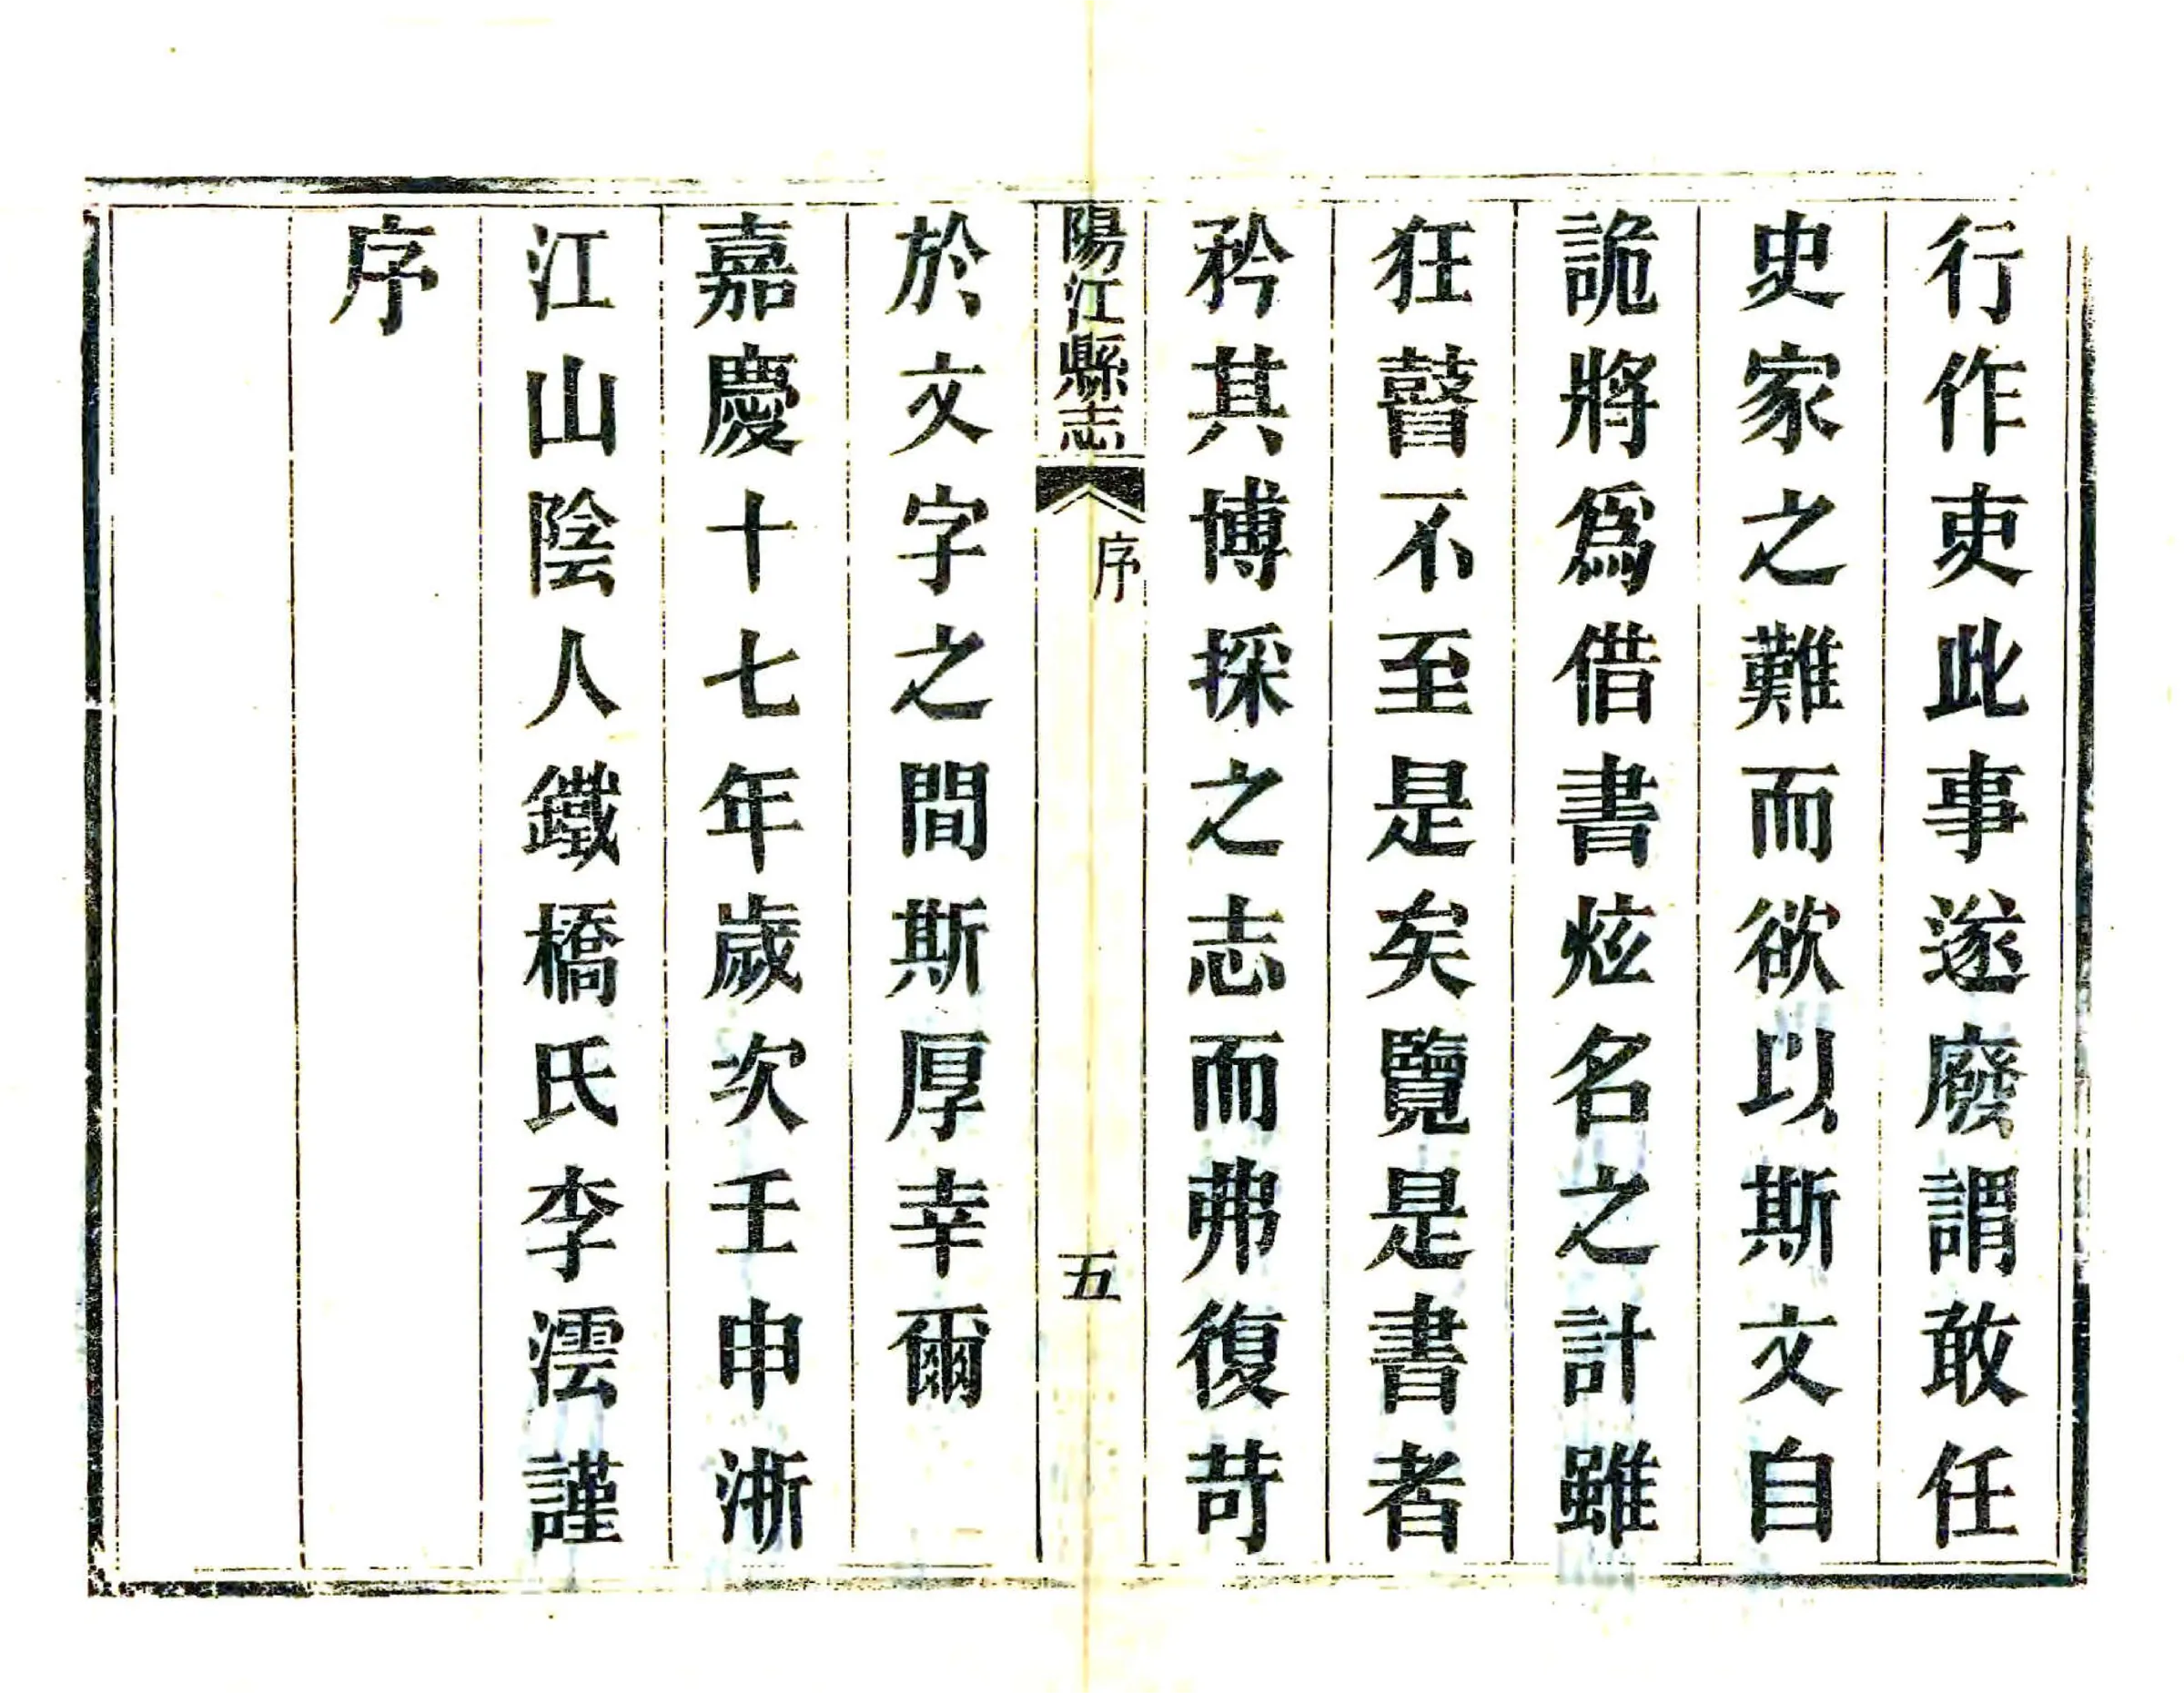 行作吏此事遂廢謂敢任
史家之難而欲以斯文自
詭將爲借書炫名之計雖
狂瞽不至是矣覽是書者
矜其博採之志而弗復苛
陽江縣志
序
五
於文字之間斯厚幸爾
嘉慶十七年歲次壬申浙
江山陰人鐵橋氏李澐謹
序